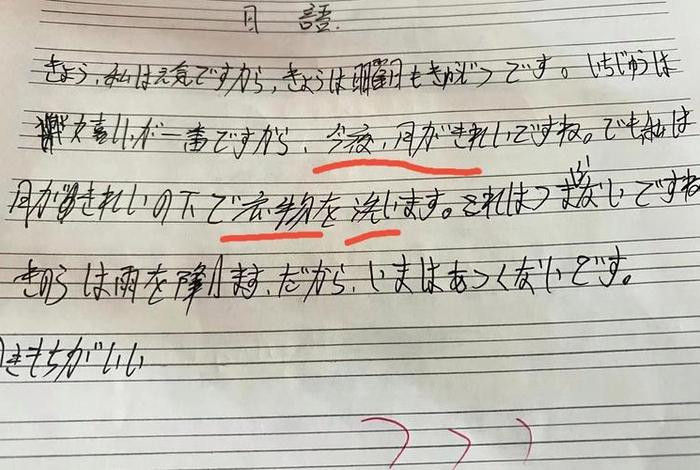 日 語.
きょう、私は元気ですから、きょうは日曜日もきゅじつです。いちじゅうは
大喜しいが一番ですから、今夜、月がきれいですね。でも私は
月がきれいの下で衣物を洗います。それはつまらないですね
きのうは雨を降ります、だから、いまはあつくないです。
きもちがいい